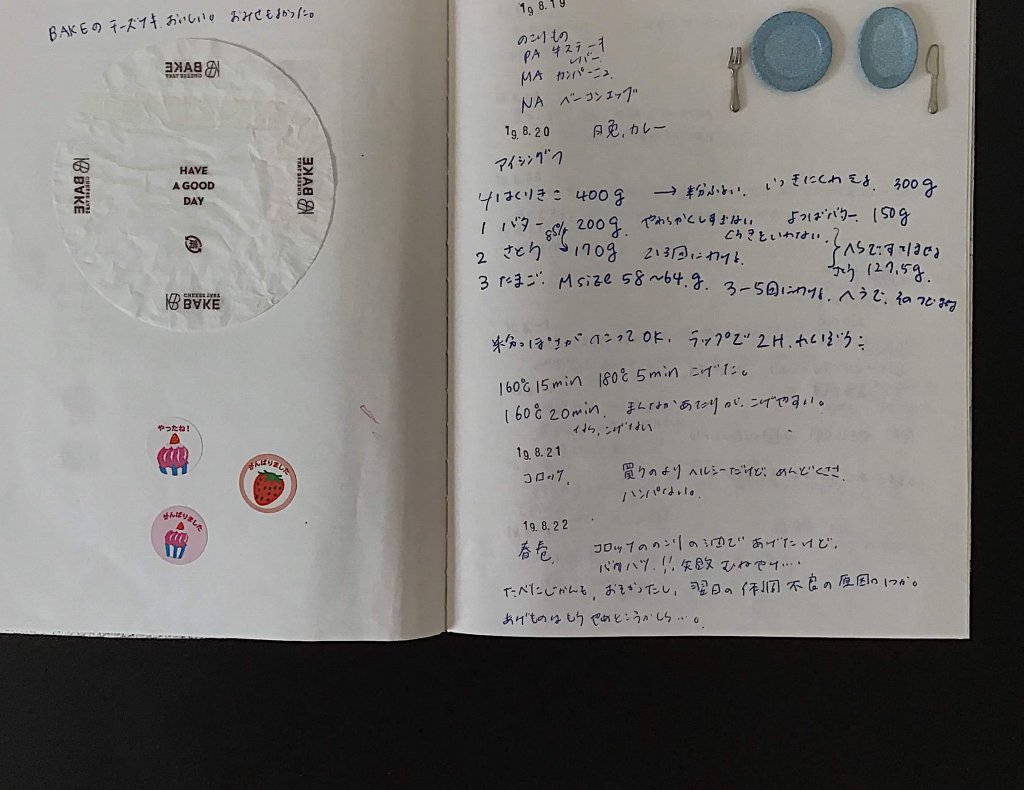 BAKEのチーズツキ おいしい。おみせもよかった。
BAKE
CHEESE TART
BAKE
CHEESE TART
HAVE
A GOOD
DAY
BAKE
CHEESE TART
BAKE
CHEESE TART
やったね!
がんばりました
がんばりました
19.8.19
のこりもの
PA サステーキ
レバー
MA カンパーニュ
NA ベーコンエッグ
19.8.20
月見,カレー
アイシング
4はくりきこ 400g → 粉ふるい. 300g
1 バター 200g. やわらかくしすぎない よつばバター. 150g
くうきをいれない.
85%
2 さとう 170g 2~3回にわける.
127.5g.
3 たまご. M size 58~64.g. 3-5回にわける. ヘラで,
粉っぽさが のこってOK. ラップで 2H.
160℃ 15min 180℃ 5min こげた。
160℃ 20min. まんなかあたりが, こげやすい。
なら, こげない
19.8.21
コロッケ. 買うのより ヘルシーだけど, めんどくささ
ハンパない。
19.8.22
春巻, コロッケののこりの油で あげたけど,
失敗 むねやけ…
たべたじかんも, おそかったし, 翌日の体調不良の原因の1つか。
あげものはもう やめとこうかしら…。